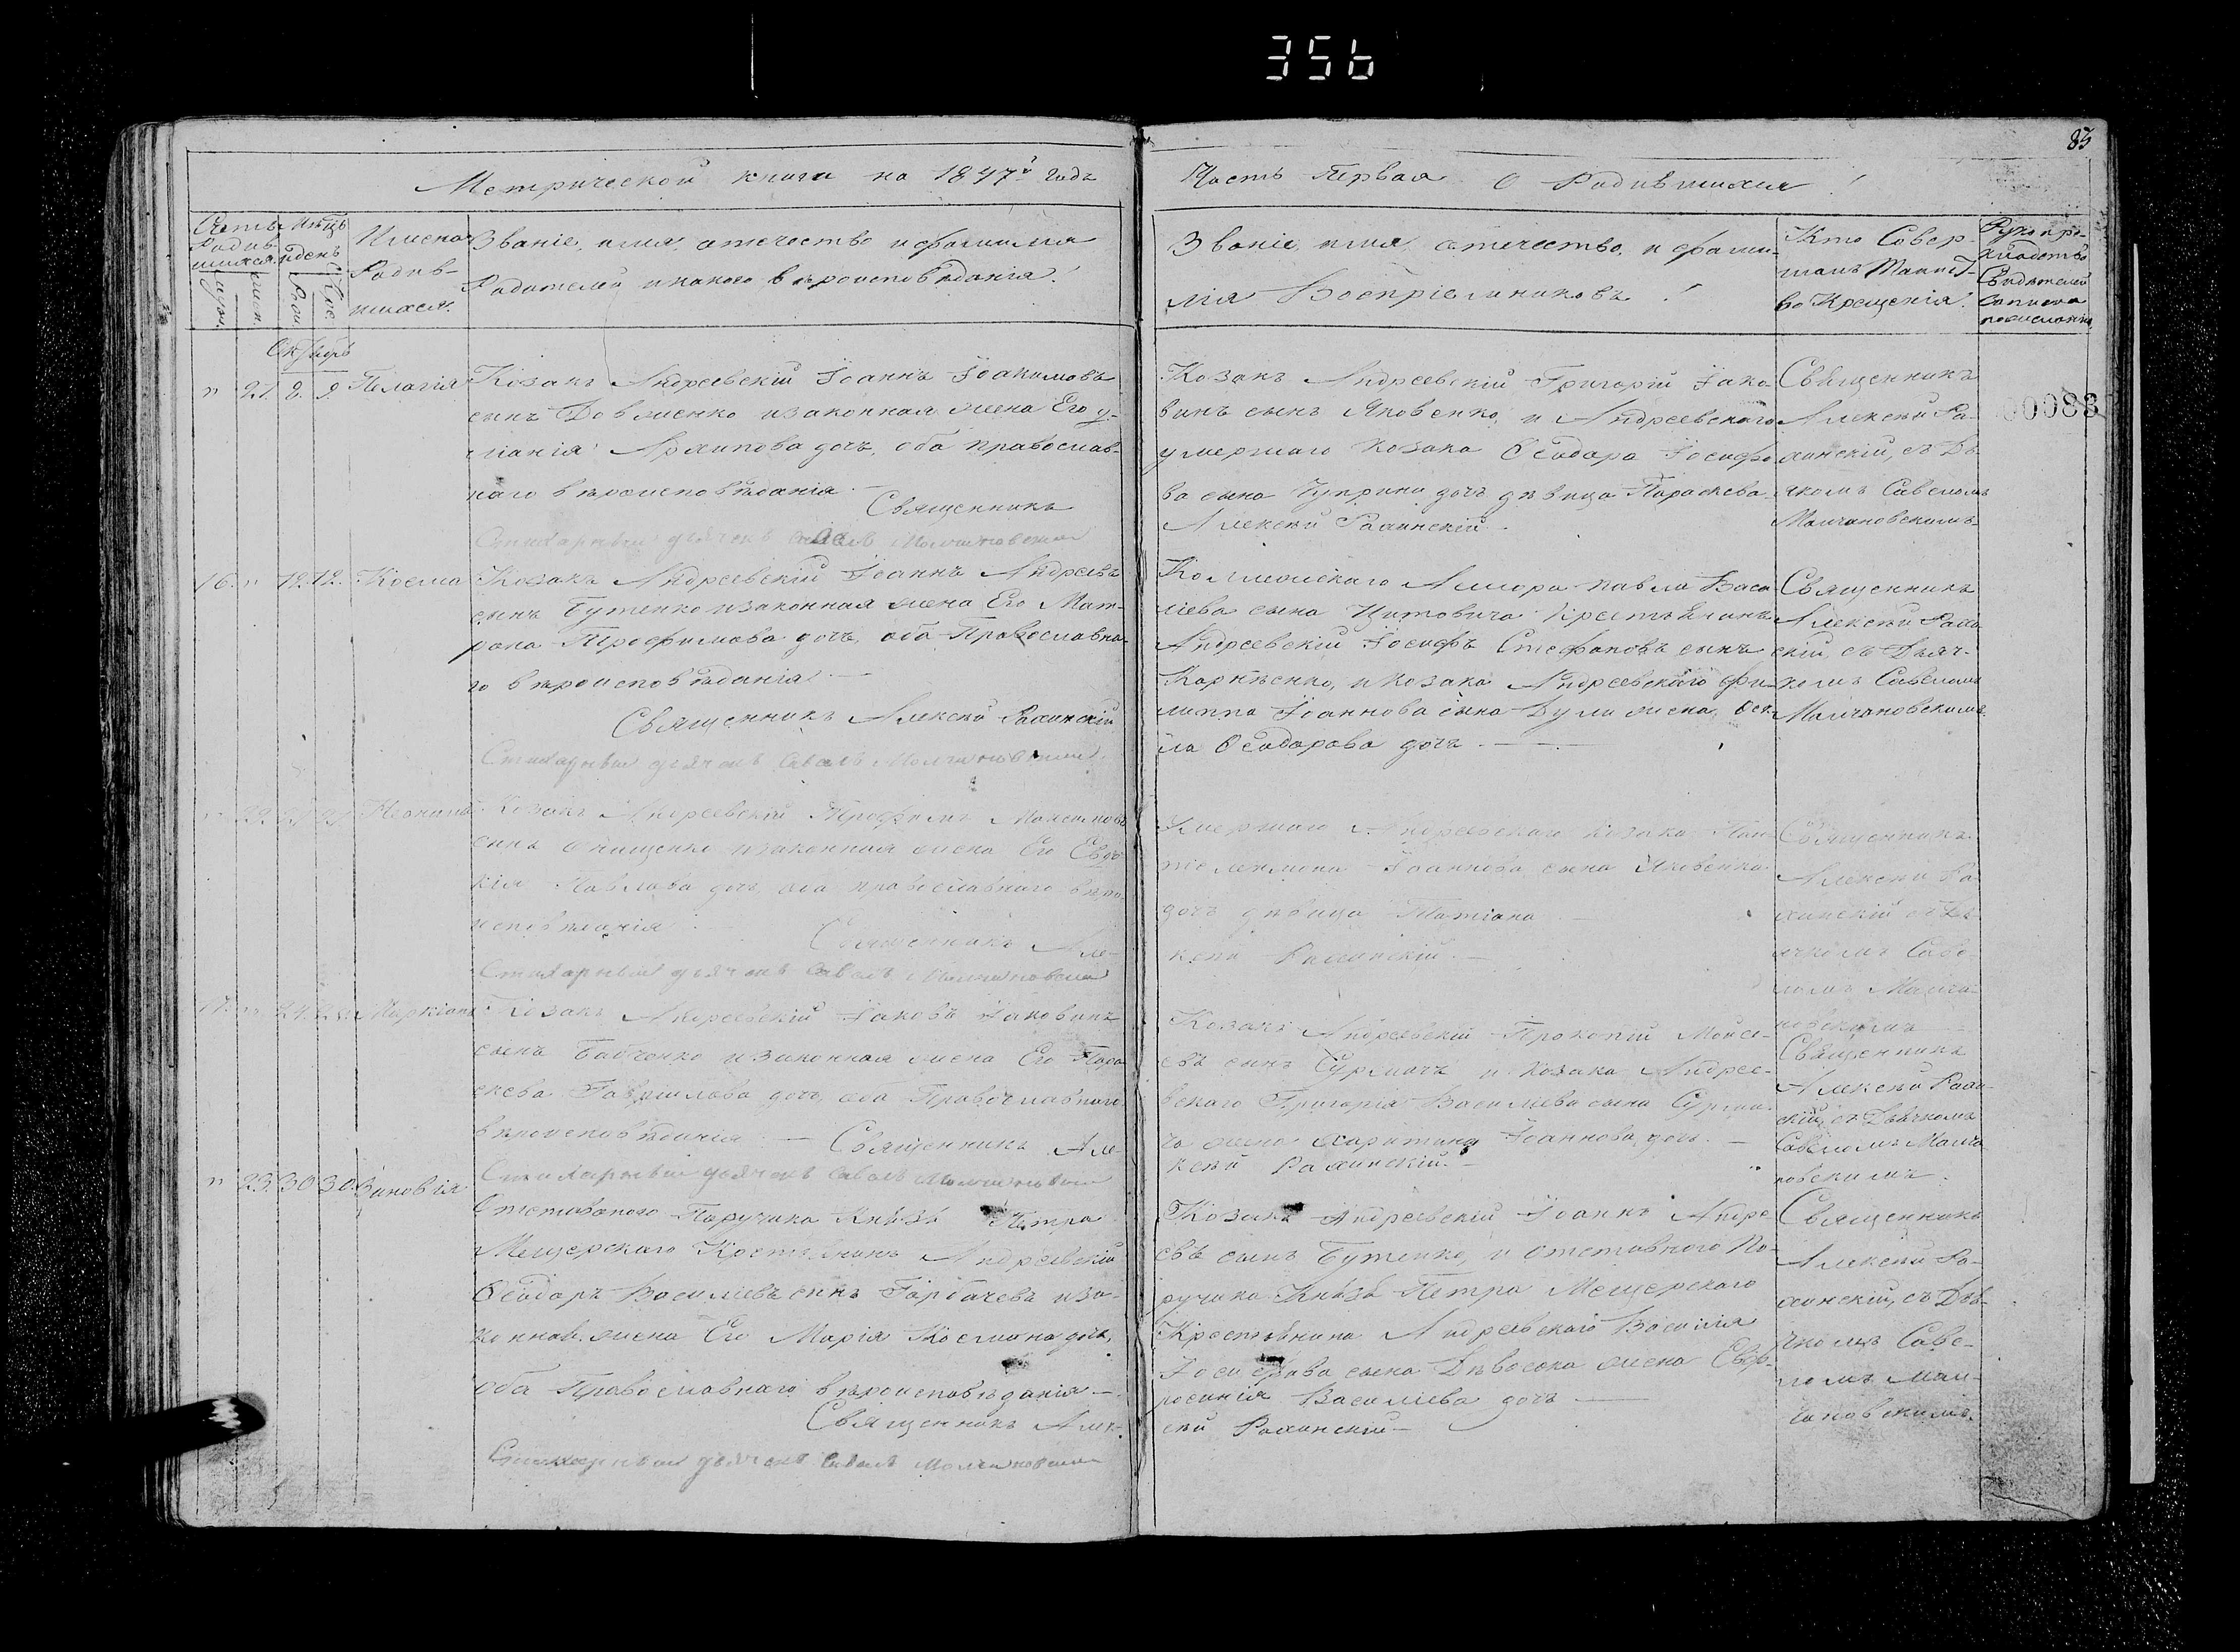 356
83
Метрической книги на 1847й годъ
Часть Первая О Родившихся!
Счетъ Родившихся.
муж.
женс.
Мѣцъ идень
Рож.
Крес.
Имена Родившихся.
Званіе, имя, отечество и фамилия
Родителей и какого вѣроисповѣданія!
Званіе, имя, отечество, и фами-
лія Воспріемниковъ!
Кто Совер-
шалъ Таинст-
во Крещенія!
Рукопри-
кладство
Свидѣтелей
записи
по желанію
Октябрь
" 21. 8. 9. Пелагія
Козакъ Андреевскій Іоаннъ Іоакимовъ
сынъ Довженко изаконная жена Его у-
ліанія Архипова дочь, оба православ-
наго вѣроисповѣданія. —
Священникъ
Стихарный дьячокъ Савелъ Молчановскій
Козакъ Андреевскій Григорій Іако-
винъ сынъ Яковенко, и Андреевскаго
умершаго козака Ѳеодора Іосифо-
ва сына Чуприни дочь дѣвица Параскева.
Алексѣй Рахинскій.
Священникъ
Алексѣй Ра-
хинскій, съ Дь-
ячкомъ Савеломъ
Молчановскимъ
00083
16. " 12. 12. Косма
Козакъ Андреевскій Іоаннъ Андреевъ
сынъ Бутенко изаконная жена Его Мат-
рона Трофимова дочь, оба Православна-
го вѣроисповѣданія. —
Священникъ Алексѣй Рахинскій
Стихарный дьячокъ Савелъ Молчановскій
Павла Васи-
ліева сына Цитовича Крестьянинъ
Андреевскій Іосифъ Стефановъ сынъ
Корнѣенко, и козака Андреевскаго Фи-
липпа Іоаннова сына Дули жена,
Ѳеодорова дочь. —
Священникъ
Алексѣй Рахин-
скій, съ Дьяч-
комъ Савеломъ
Молчановскимъ.
" 22.
Козакъ Андреевскій Трофимъ Максимовъ
сынъ Онищенко изаконная жена Его Евдо-
кія Павлова дочь, оба православнаго вѣро-
исповѣданія. —
Священникъ Але-
Стихарный дьячокъ Савелъ Молчановскій
Умершаго Андреевскаго козака Пан-
телеимона Іоаннова сына Яковенка
дочь дѣвица Татіана —
ксѣй Рахинскій. —
Священникъ
Алексѣй Ра-
хинскій съ Дь-
ячкомъ Саве-
ломъ Молча-
новскимъ
17. " Маркіанъ
Козакъ Андреевскій Іаковъ Іаковинъ
сынъ Бабченко изаконная жена Его Пара-
скева Гавріилова дочь, оба Православнаго
вѣроисповѣданія — Священникъ Але-
Стихарный дьячокъ Савелъ Молчановскій
Козакъ Андреевскій Прокопій Моисе-
евъ сынъ Сурмачъ и козака Андрее-
вскаго Григорія Василіева сына Сурма-
ча жена Харитина Іоаннова дочь. —
ксѣй Рахинскій. —
Священникъ
Алексѣй Рахин-
скій, съ Дьячкомъ
Савеломъ Молча-
новскимъ.
" 23. 30. 30. Зиновія
Отставного Поручика Князя Петра
Мещерскаго Крестьянинъ Андреевскій
Ѳеодоръ Василіевъ сынъ Горбачевъ иза-
конная жена Его Марія Космина дочь,
оба Православнаго вѣроисповѣданія —
Священникъ Алек-
Стихарный дьячокъ Савелъ Молчановскій
Козакъ Андреевскій Іоаннъ Андре-
евъ сынъ Бутенко, и Отставного По-
ручика Князя Петра Мещерскаго
Крестьянина Андреевскаго Василія
Іосифова сына Бѣлоока жена Евфро-
росинія Василіева дочь —
сѣй Рахинскій —
Священникъ
Алексѣй Ра-
хинскій, съ Дья-
чкомъ Саве-
ломъ Мол-
чановскимъ.